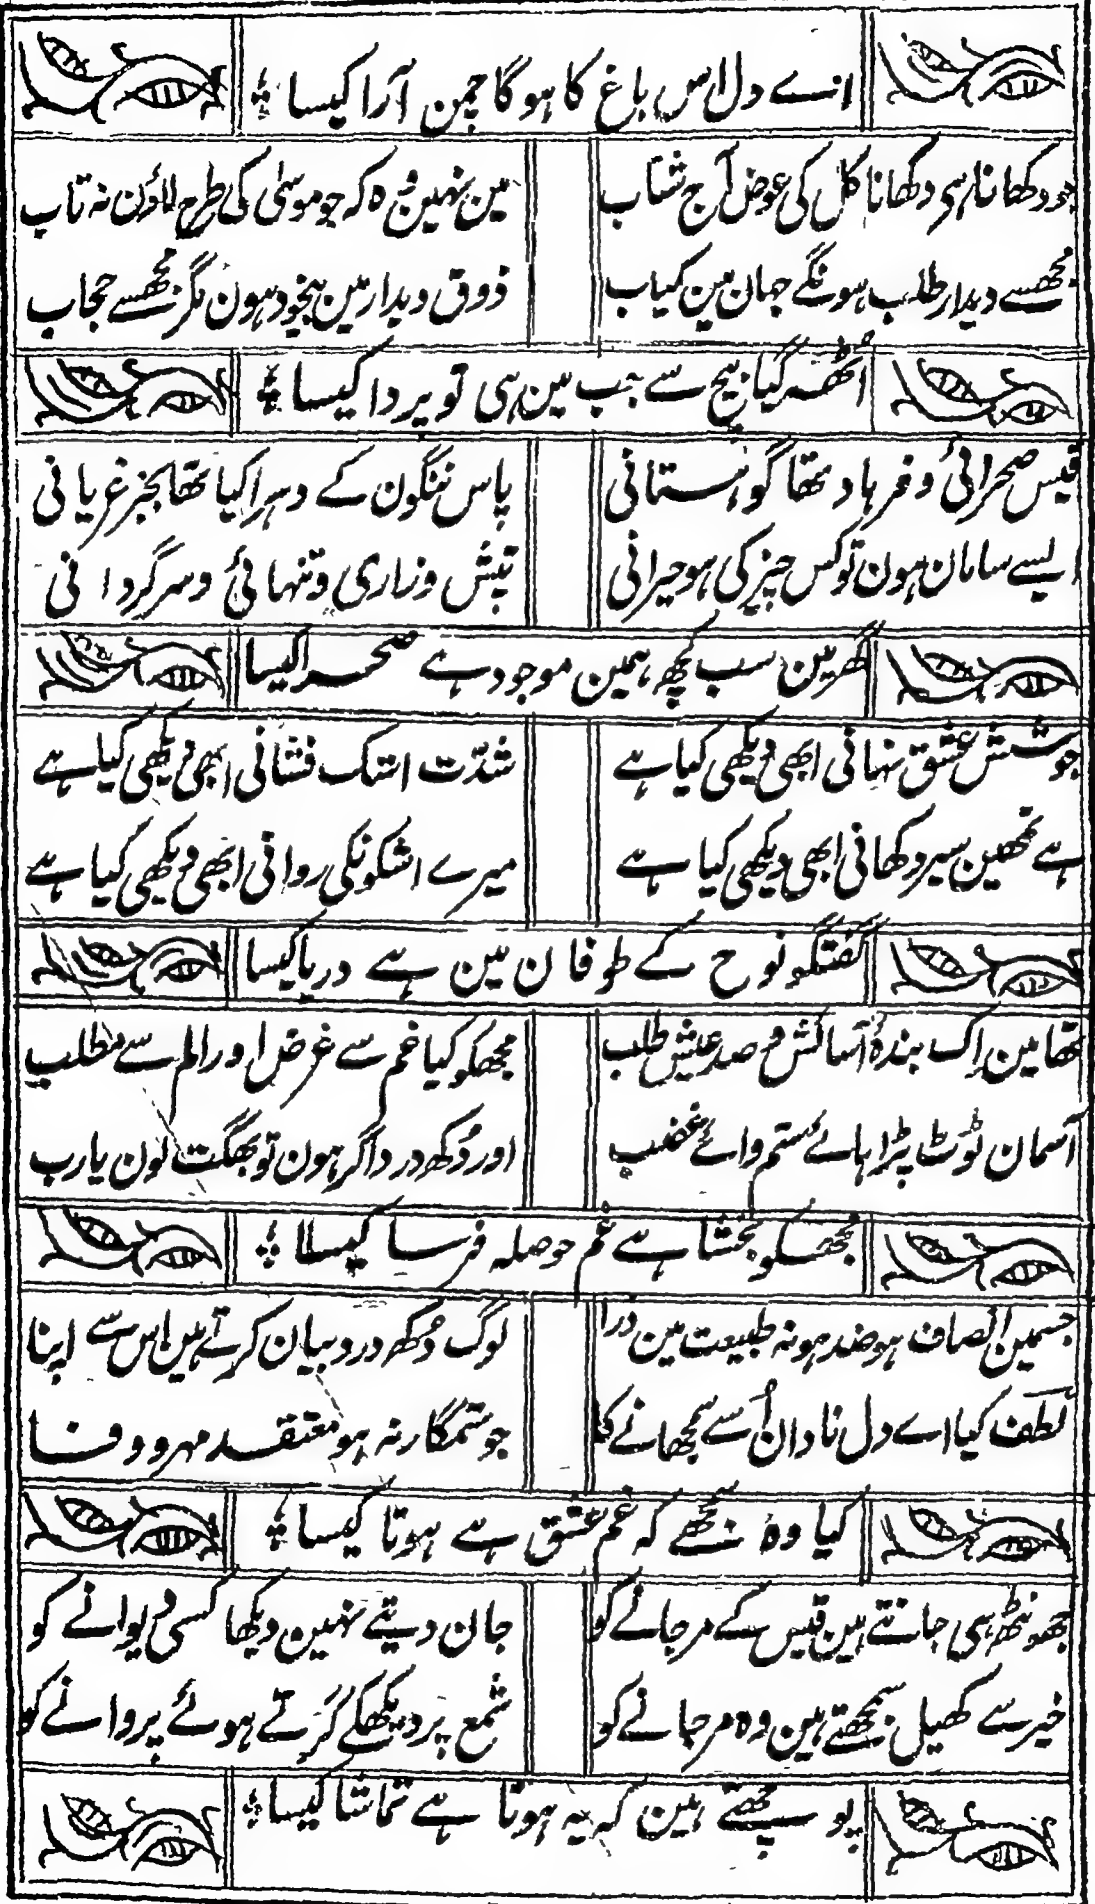 اے دل اس باغ کا ہو گا چمن آرا کیسا
جو دکھانا ہے دکھانا کل کی عوض آج شتاب
مین نہین وہ کہ جو موسیٰ کی طرح لاؤن نہ تاب
مجھسے دیدار طلب ہونگے جہان مین کمیاب
ذوق دیدار مین بیخود ہون مگر مجھسے حجاب
اُٹھہ گیا بیچ سے جب مین ہی تو پردا کیسا
قیس صحرائی و فرہاد تھا کوہستانی
پاس ننگون کے دہرا کیا تھا بجز عریانی
ایسے سامان ہون تو کس چیز کی ہو حیرانی
تپش و زاری و تنہائی و سرگردانی
گھر مین سب کچھ ہمین موجود ہے صحرا کیسا
جوشش عشق نہانی ابھی دیکھی کیا ہے
شدّت اشک فشانی ابھی دیکھی کیا ہے
ہے تمھین سیر دکھانی ابھی دیکھی کیا ہے
میرے اشکونکی روانی ابھی دیکھی کیا ہے
گفتگو نوح کے طوفان مین ہے دریا کیسا
تھا مین اِک بندۂ آسائش و صد عیش طلب
مجھکو کیا غم سے غرض اور الم سے مطلب
آسمان ٹوٹ پڑا ہائے ستم وائے غضب
اور دُکھ درد اگر ہون تو بھگت لون یارب
مجھکو بخشا ہے غم حوصلہ فرسا کیسا
جسمین انصاف ہو ضد ہو نہ طبیعت مین ذرا
لوگ دُکھ درد بیان کرتے ہین اس سے اپنا
لُطف کیا اے دل نادان اُسے سمجھانے کا
جو ستمگار نہ ہو معتقد مہر و وفا
کیا وہ سمجھے کہ غم عشق ہے ہوتا کیسا
جھونٹھ ہی جانتے ہین قیس کے مر جانے کو
جان دیتے نہین دیکھا کسی دیوانے کو
خیر سے کھیل سمجھتے ہین وہ مر جانے کو
شمع پر دیکھکے گرتے ہوئے پروانے کو
پوچھتے ہین کہ یہ ہوتا ہے تماشا کیسا